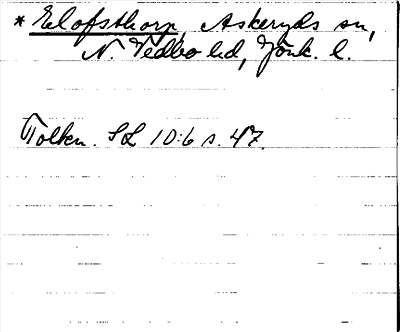 * Elofsthorp, Askeryds sn,
N. Vedbo hd, Jönk. l.
Tolken. SL 10:6 s. 47.